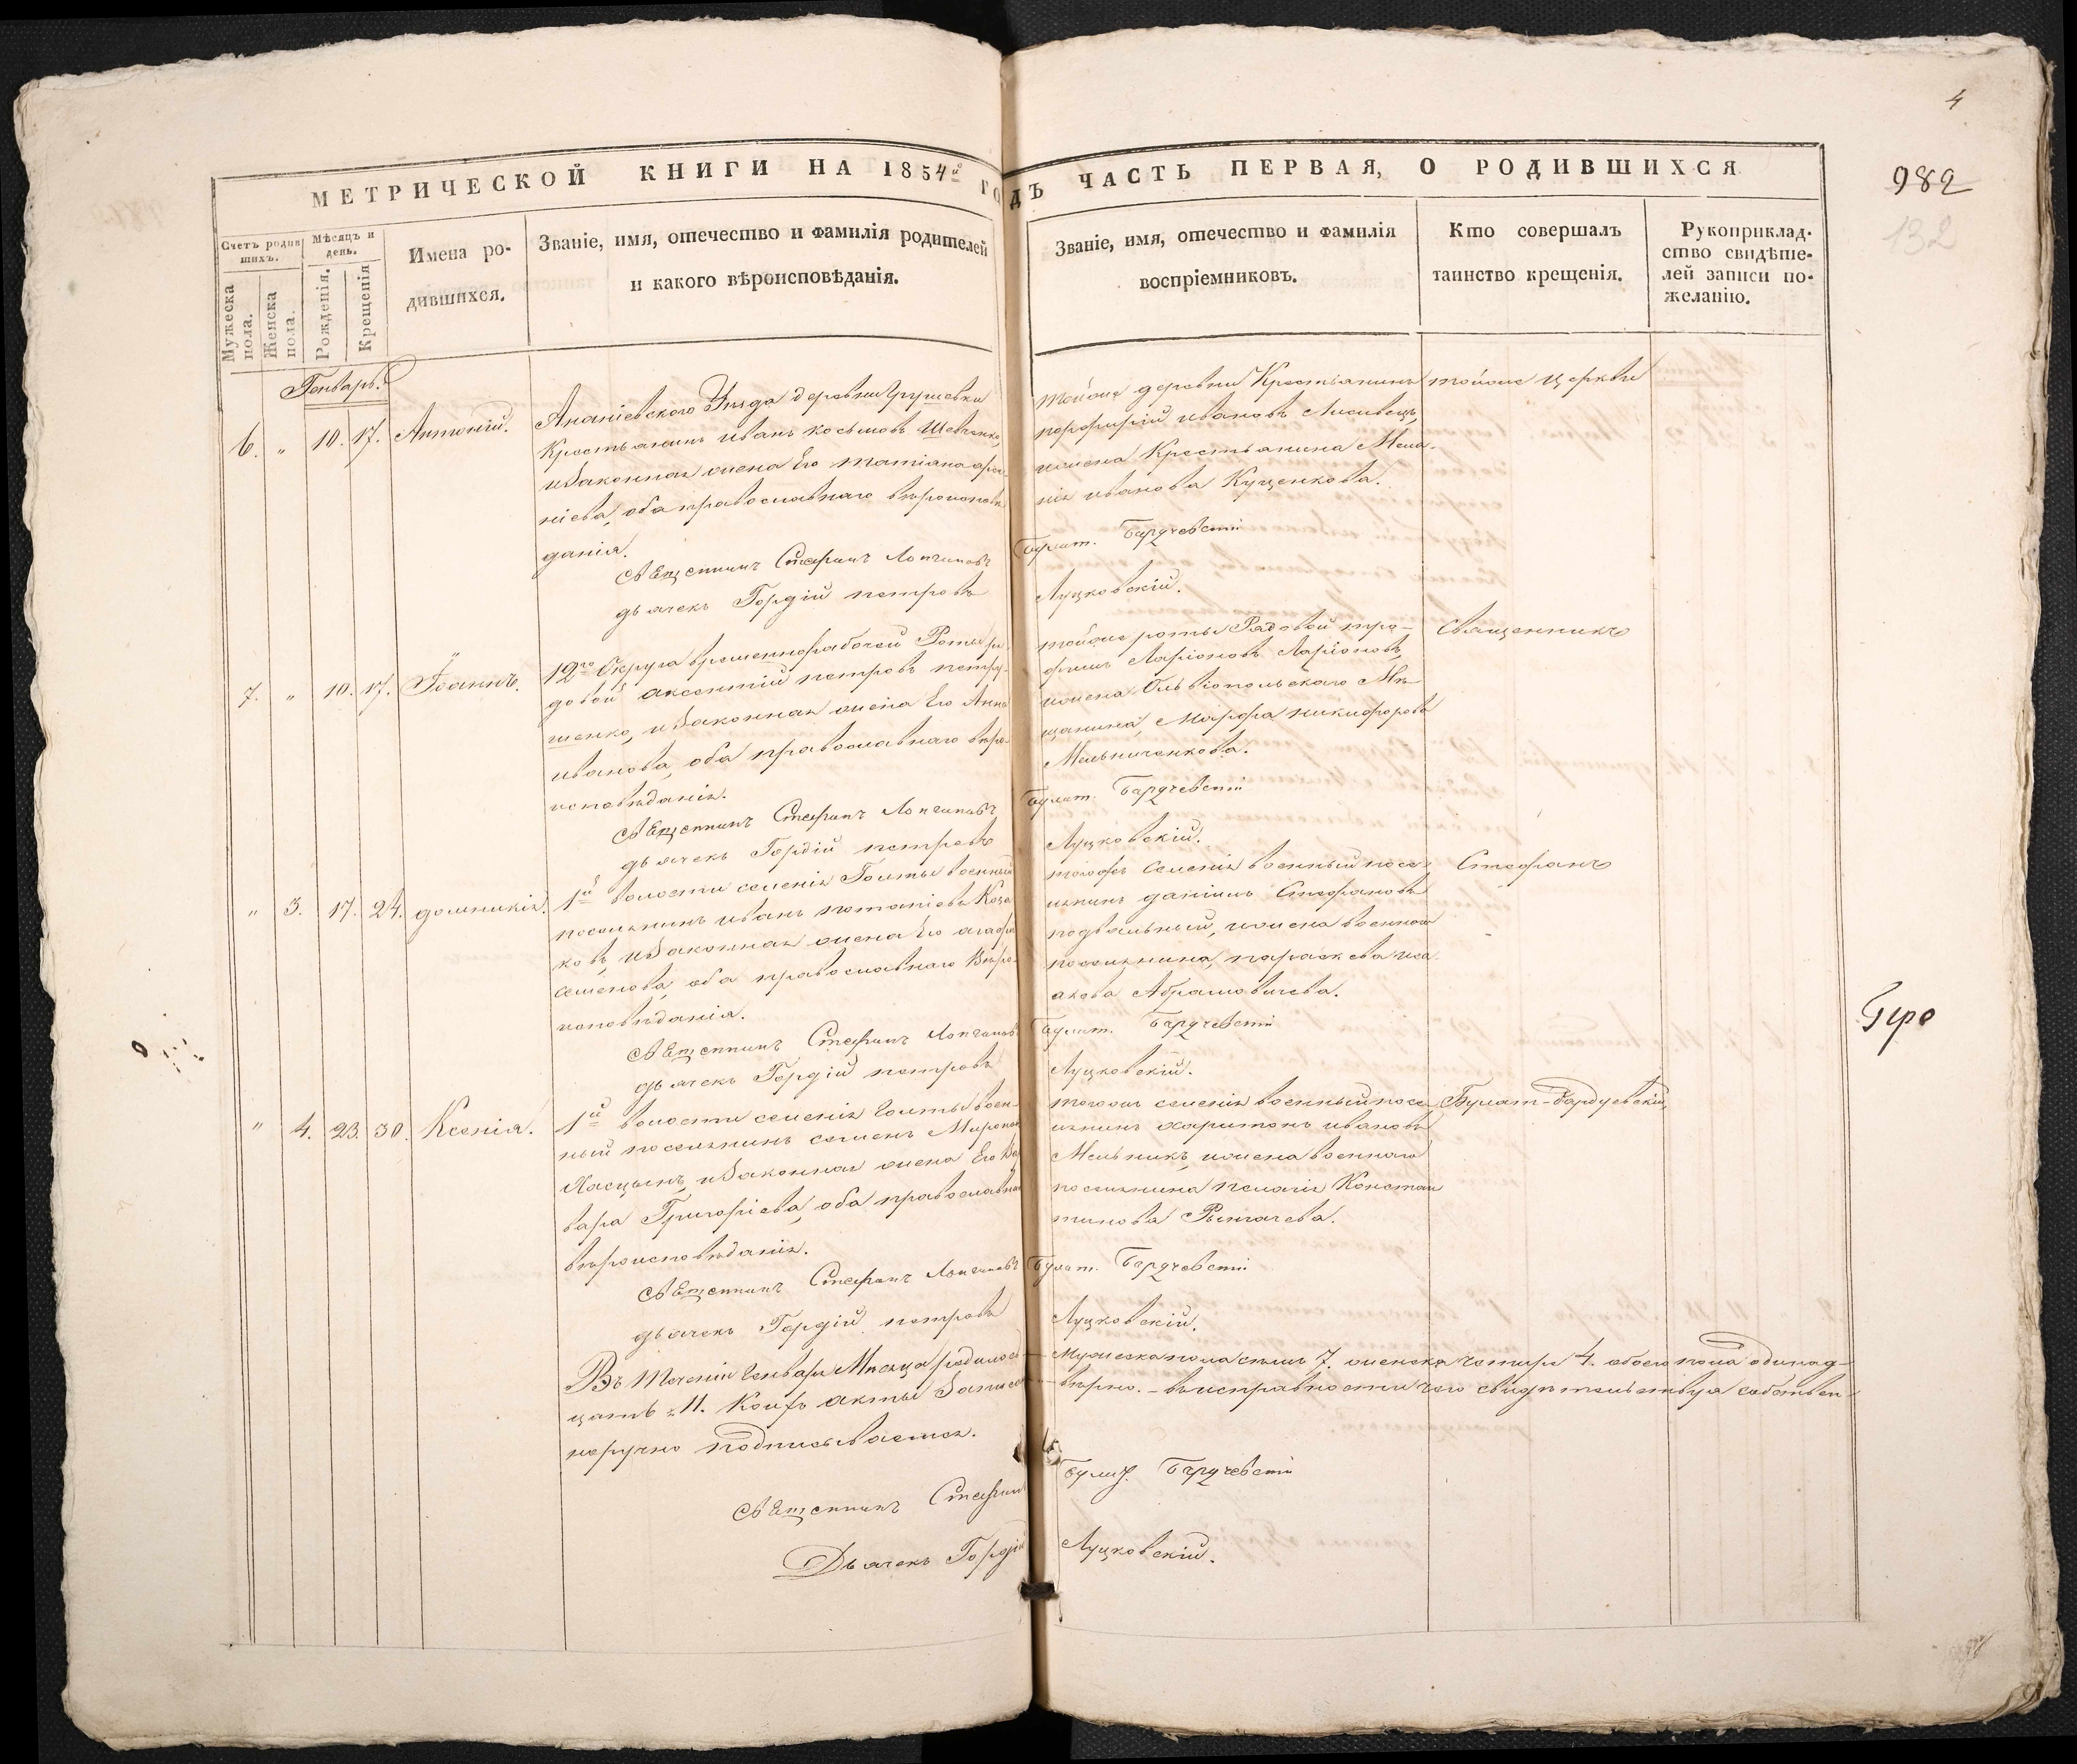 4
МЕТРИЧЕСКОЙ КНИГИ НА 1854й ГОДЪ ЧАСТЬ ПЕРВАЯ, О РОДИВШИХСЯ
982
132
Счетъ родив
шихъ.
Мужеска
пола.
Женска
пола.
Мѣсяцъ и
день.
Рожденія.
Крещенія
Имена ро-
дившихся.
Званіе, имя, отечество и фамилія родителей
и какого вѣроисповѣданія.
Званіе, имя, отечество и фамилія
воспріемниковъ.
Кто совершалъ
таинство крещенія.
Рукоприклад-
ство свидѣте-
лей записи по-
желанію.
Генварь.
6. " 10. 17. Антоній.
Ананіевскаго Уѣзда деревни Грушевки
Крестьянинъ иванъ косьмовъ Шевченко,
и Законная жена Его татіана
ніева, оба православнаго вѣроисповѣ
данія.
Священникъ Стефанъ
дьячекъ Гордій петровъ
тойже деревни Крестьянинъ
порфирій ивановъ Лисивецъ,
ижена Крестьянина Мела-
нія иванова Куценкова.
Булат. Бардчевскій
Луцковскій.
тойже Церкви
7. " 10. 17. Іоаннъ.
12го Округа временнорабочей Роты ря
довой авксентій петровъ петру-
шенко, и Законная жена Его Анна
иванова, оба православнаго вѣро-
исповѣданія.
Священникъ Стефанъ
дьячекъ Гордій петровъ
тойже роты Рядовой тро-
фимъ Ларіоновъ Ларіоновъ,
ижена Ольвіопольскаго Мѣ
щанина, Марфа никифорова
Мельниченкова.
Булат. Бардчевскій
Луцковскій.
Священникъ
" 3. 17. 24. домникія.
1й волости селенія Голты военный
поселянинъ иванъ потапіевъ Коза
ковъ, и Законная жена Его агафи
семенова, оба православнаго Вѣро-
исповѣданія.
Священникъ Стефанъ
дьячекъ Гордій петровъ
тогожъ селенія военный посе-
лянинъ даніилъ Стефановъ
подвальный, ижена военнаго
поселянина, параскева иса
акова Абрамовичева.
Булат. Бардчевскій
Луцковскій.
Стефанъ
Геро
" 4. 23. 30. Ксенія.
1й волости селенія Голты воен-
ный поселянинъ семенъ Миронов
и Законная жена Его Вар
вара Григоріева, оба православнаг
вѣроисповѣданія.
Священникъ Стефанъ
дьячекъ Гордій петровъ
тогожъ селенія военный посе
лянинъ харитонъ ивановъ
Мельникъ, ижена военнаго
поселянина пелагія Констан
тинова
Булат. Бардчевскій
Луцковскій.
Булат-Бардчевскій,
Въ теченіи Генваря Мѣсяца родилось мужеска пола семь 7. женска четыре 4. обоего пола одинад-
цать 11. Коихъ акты Записаны вѣрно. - въ исправности чего свидѣтельствуя собствен-
норучно подписываемся.
Священникъ Стефанъ Булат. Бардчевскій
Дьячекъ Гордій Луцковскій.